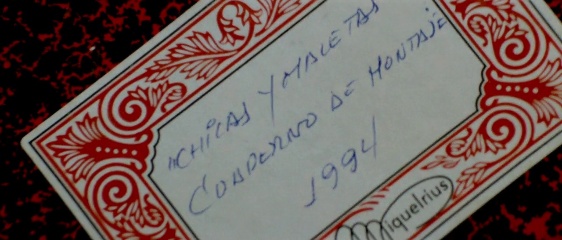 "CHICAS Y MALETAS
CUADERNO DE MONTAJE
1994
Miquelrius